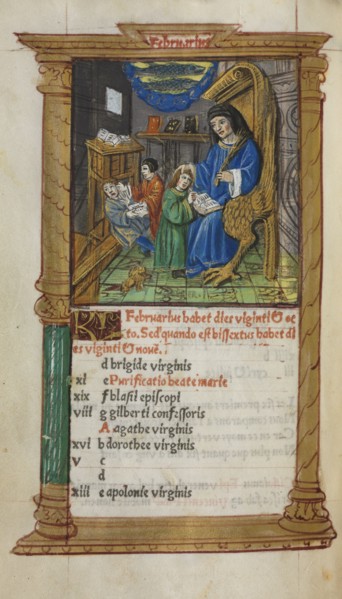 Februarius
KL Februarius habet dies viginti & oc
to. Sed quando est bissextus habet di
es viginti & nouē.
d brigide virginis
xi e Purificatio beate marie
xix f blasii episcopi
viii g gilberti confessoris
A agathe virginis
xvi b dorothee virginis
v c
d
xiii e apolonie virginis